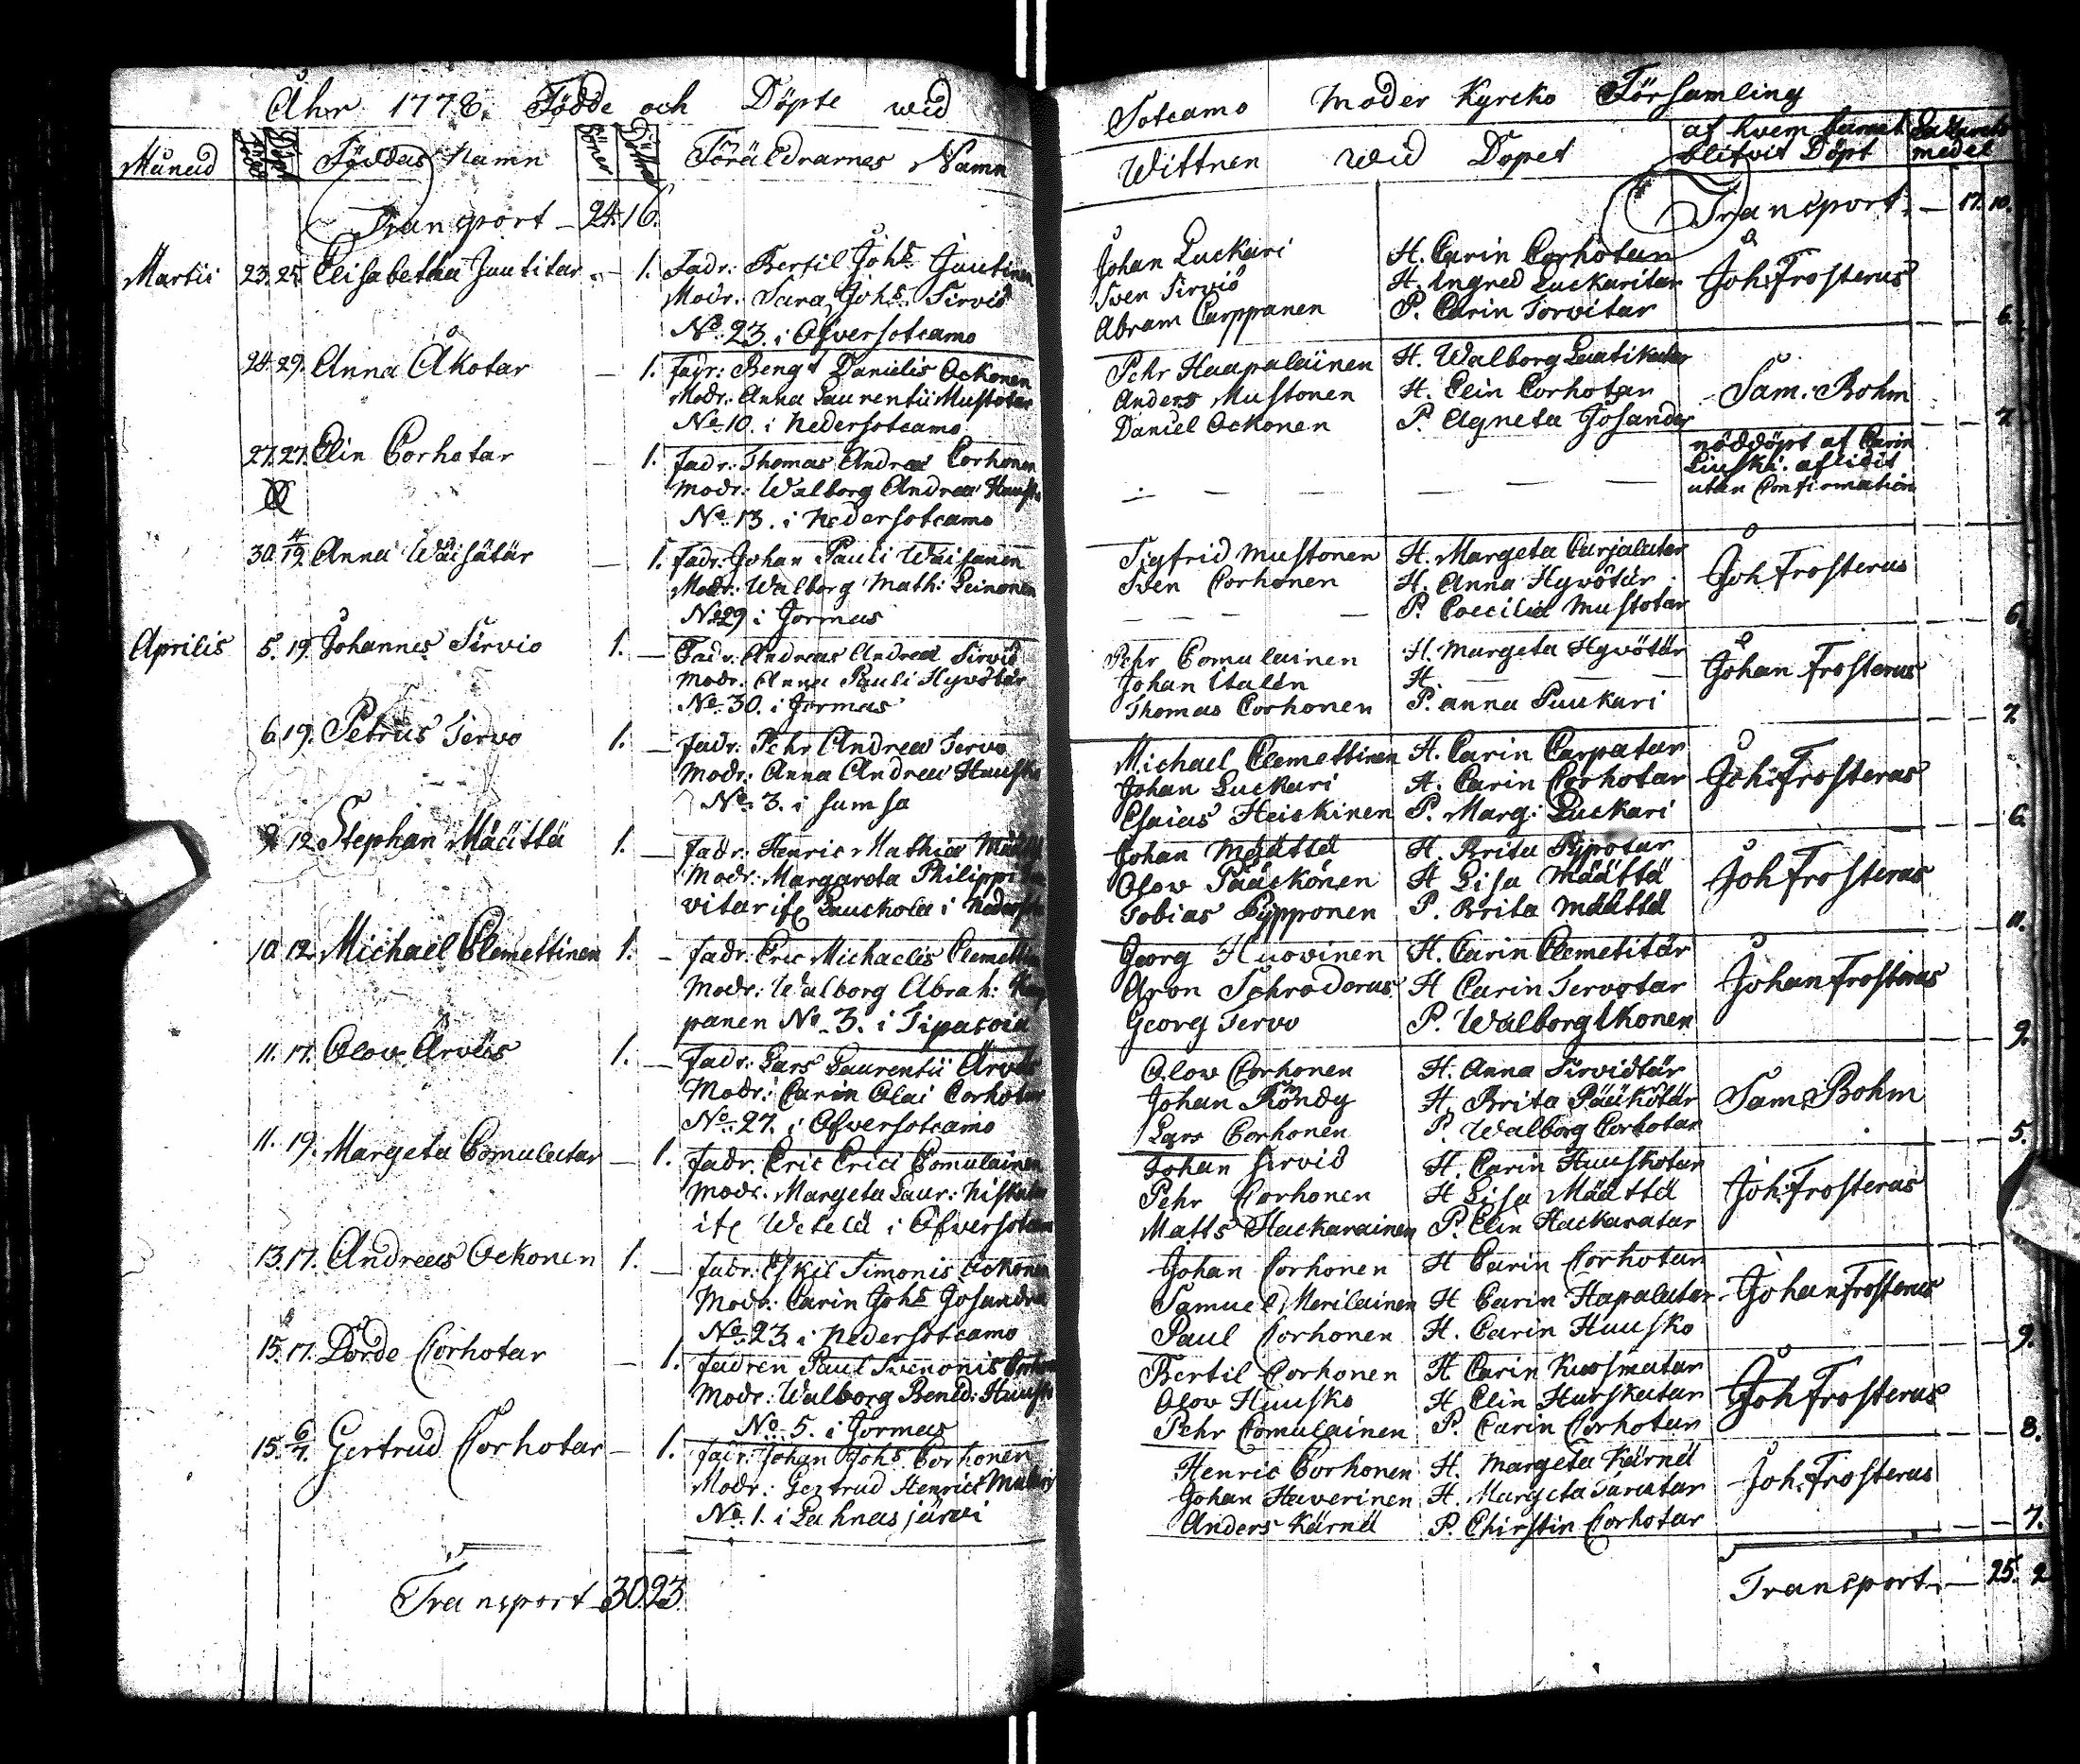 Åhr 1778. Födde och Döpte wid
Månad Född Döpt Föddas Namn Söner Döttrar Föräldrarnes Namn
Transport 24. 16.
Martii 23. 25. Elisabetha Juutitar — 1. Fadr: Bertil Johs Juutinen
Modr. Sara Johs Sirviö
No. 23. i Ofversotcamo
24. 29. Anna Åkotar — 1. Fadr: Bengt Danielis Ockonen
Modr: Anna Laurentii Mustotar
No. 10. i Nedersotcamo
27. 27. Elin Corhotar — 1. Fadr: Thomas Andreæ Corhonen
Modr: Walborg Andreæ
No. 13. i Nedersotcamo
30. 4/19. Anna Wäisätär — 1. Fadr: Johan Pauli Wäisänen
Modr: Walborg Math: Leinonen
No 29 i Jormas
Aprilis 5. 19. Johannes Sirvio 1. — Fadr: Andreas Andreæ Sirviö
Modr. Anna Pauli Hyvötär
No. 30. i Jormas
6. 19. Petrus Tervo 1. — Fadr: Pehr Andreæ Tervo
Modr: Anna Andreæ Huusko
No. 3. i Sumsa
9. 12. Stephan Määttä 1. — Fadr: Henric Mathiæ
Modr: Margareta Philippi
vitar Lauckola i
10. 12. Michael Clemettinen 1. — Fadr: Eric Michaelis Clemettin
Modr: Walborg Abrah:
panen No. 3. i Tipasoia
11. 17. Olov Ärväs 1. — Fadr: Lars Laurentii Ärväs
Modr: Carin Olai Corhotar
No. 27. i Ofversotcamo
11. 19. Margeta Comulatar — 1. Fadr. Eric Erici Comulainen
Modr. Margeta Laur:
Wetelä i Ofversotcam
13. 17. Andreas Ockonen 1. — Fadr. Eskil Simonis Ockonen
Modr: Carin Johs
No. 23 i Nedersotcamo
15. 17. Dorde Corhotar — 1. Fadren Paul Svenonis
Modr: Walborg Bened: Huusko
No. 5. i Jormas
15. 6/7. Gertrud Corhotar — 1. Fadr: Johan Johs Corhonen
Modr: Gertrud Henrics
No. 1. i Lahnasjärvi
Transport 30. 23.
Sotcamo Moder Kyrcko Församling
Wittnen wid Dopet af hvem barnet blifvit Döpt medel
Transport — 17. 10.
Johan Luckari H. Carin Corhotar
Sven Sirviö H. Ingred Luckaritar Joh: Frosterus
Abram Carppanen P. Carin Torvitar 6.
Pehr Haapalainen H. Walborg
Anders Mustonen H. Elin Corhotar Sam. Bohm
Daniel Ockonen P. Agneta 7
nöddöpt af Carin
aflidit
utan Confirmation
Sigfrid Mustonen H. Margeta Carjalatar
Sven Corhonen H. Anna Hyvötär Joh Frosterus
P. Coecilia Mustotar 6.
Pehr Comulainen H. Margeta Hyvötär
Johan H. — Johan Frosterus
Thomas Corhonen P. Anna Puckari 7
Michael Clemettinen H. Carin Carpatar
Johan Luckari H. Carin Corhotar Joh: Frosterus
Esaias Heickinen P. Marg: Luckari 6.
Johan Määttä H. Brita Pypotar
Olov Pääckönen H Lisa Määttä Joh Frosterus
Tobias Pypponen P. Brita Määttä 11.
Georg Huovinen H. Carin Clemetitär
Aron Schroderus H Carin Tervotar Johan Frosterus
Georg Tervo P. Walborg Ikonen 9.
Olov Corhonen H. Anna Sirviötär
Johan Röndy H. Brita Pääkötär Sam: Bohm
Lars Corhonen P. Walborg Corhotar 5.
Johan Sirviö H. Carin Huuskotar
Pehr Corhonen H Lisa Määttä Joh: Frosterus
Matts Hackarainen P. Elin Hackaratar
Johan Corhonen H Carin Corhotar
Samuel Merilainen H Carin Hapalatar Johan Frosterus
Paul Corhonen H. Carin Huusko 9.
Bertil Corhonen H Carin Kuosmatar
Olov Huusko H Elin Joh Frosterus
Pehr Comulainen P. Carin Corhotar 8.
Henric Corhonen H. Margeta Kärnä
Johan Haverinen H. Margeta Joh. Frosterus
Anders Kärnä P. Chirstin Corhotar 7.
Transport. — 25. 2